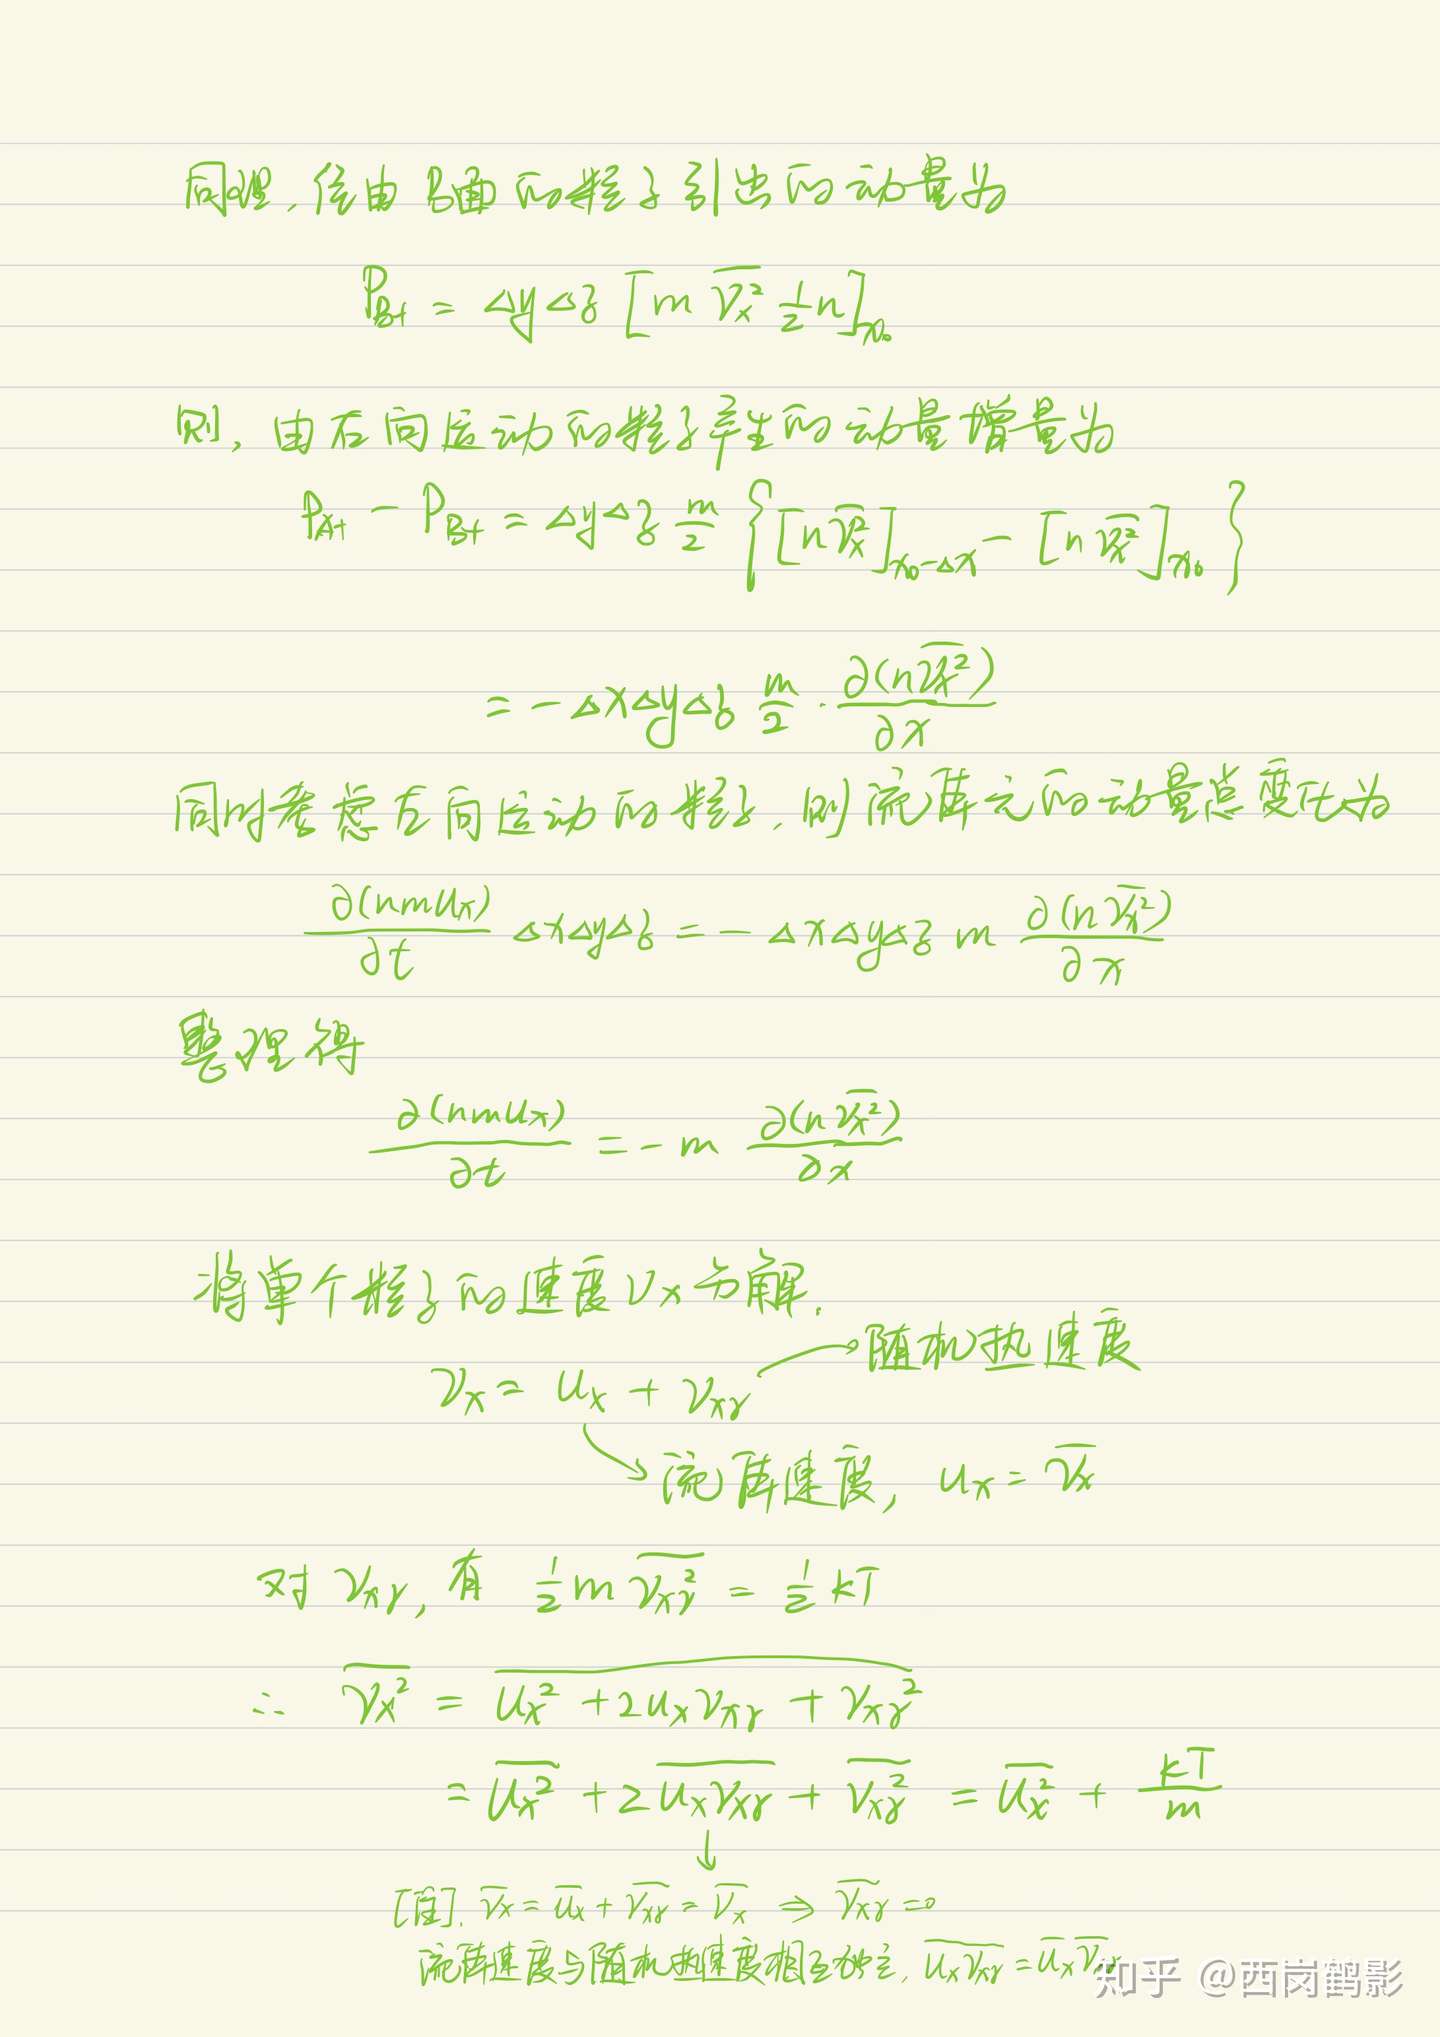 同理,经由B面的粒子引出的动量为
P_{B+} = ΔyΔz [m \overline{v_x^2} \frac{1}{2} n]_{x_0}
则,由右向运动的粒子产生的动量增量为
P_{A+} - P_{B+} = ΔyΔz \frac{m}{2} {[n\overline{v_x^2}]_{x_0-Δx} - [n\overline{v_x^2}]_{x_0}}
= -ΔxΔyΔz \frac{m}{2} · \frac{∂(n\overline{v_x^2})}{∂x}
同时考虑左向运动的粒子,则流体元的动量总变化为
\frac{∂(nmu_x)}{∂t} ΔxΔyΔz = -ΔxΔyΔz m \frac{∂(n\overline{v_x^2})}{∂x}
整理得
\frac{∂(nmu_x)}{∂t} = -m \frac{∂(n\overline{v_x^2})}{∂x}
将单个粒子的速度v_x分解.
v_x = u_x + v_{xr} → 随机热速度
→ 流体速度, u_x = \overline{v_x}
对 v_{xr}, 有 \frac{1}{2}m\overline{v_{xr}^2} = \frac{1}{2}kT
∴ \overline{v_x^2} = \overline{u_x^2 + 2u_xv_{xr} + v_{xr}^2}
= \overline{u_x^2} + 2\overline{u_xv_{xr}} + \overline{v_{xr}^2} = \overline{u_x^2} + \frac{kT}{m}
↓
[注]. \overline{v_x} = \overline{u_x} + \overline{v_{xr}} = \overline{v_x} ⇒ \overline{v_{xr}} = 0
流体速度与随机热速度相互独立, \overline{u_xv_{xr}} = \overline{u_x}\overline{v_{xr}}
知乎 @西岗鹤影